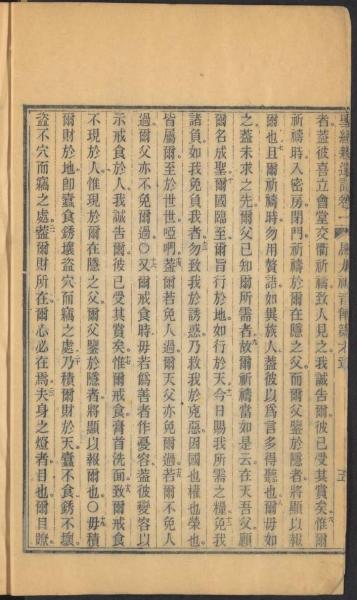 聖經 卷一 六章 五
者蓋彼喜立會堂交衢祈禱致人見之我誠告爾彼已受其賞矣惟爾
祈禱時入密房閉門祈禱於爾在隱之父而爾父鑒於隱者將顯以報
爾也且爾祈禱時勿用贅語如異族人蓋彼以爲言多得聽也爾毋如
之蓋未求之先爾父已知爾所需者故爾祈禱當如是云在天吾父願
爾名成聖爾國臨至爾旨行於地如行於天今日賜我所需之糧免我
諸負如我免負我者勿致我於誘惑乃救我於克惡因國也權也榮也
皆屬爾至於世世啞蓋爾若免人過爾天父亦免爾過若爾不免人
過爾父亦不免爾過○又爾戒食時毋若偽善者作憂容蓋彼變容以
示戒食於人我誠告爾彼已受其賞矣惟爾戒食膏首洗面致爾戒食
不現於人惟現於爾在隱之父爾父鑒於隱者將顯以報爾也○毋積
爾財於地即蠹食銹壞盜穴而竊之處乃積爾財於天蠹不食銹不壞
盜不穴而竊之處蓋爾財所在爾心必在焉夫身之燈者目也爾目瞭